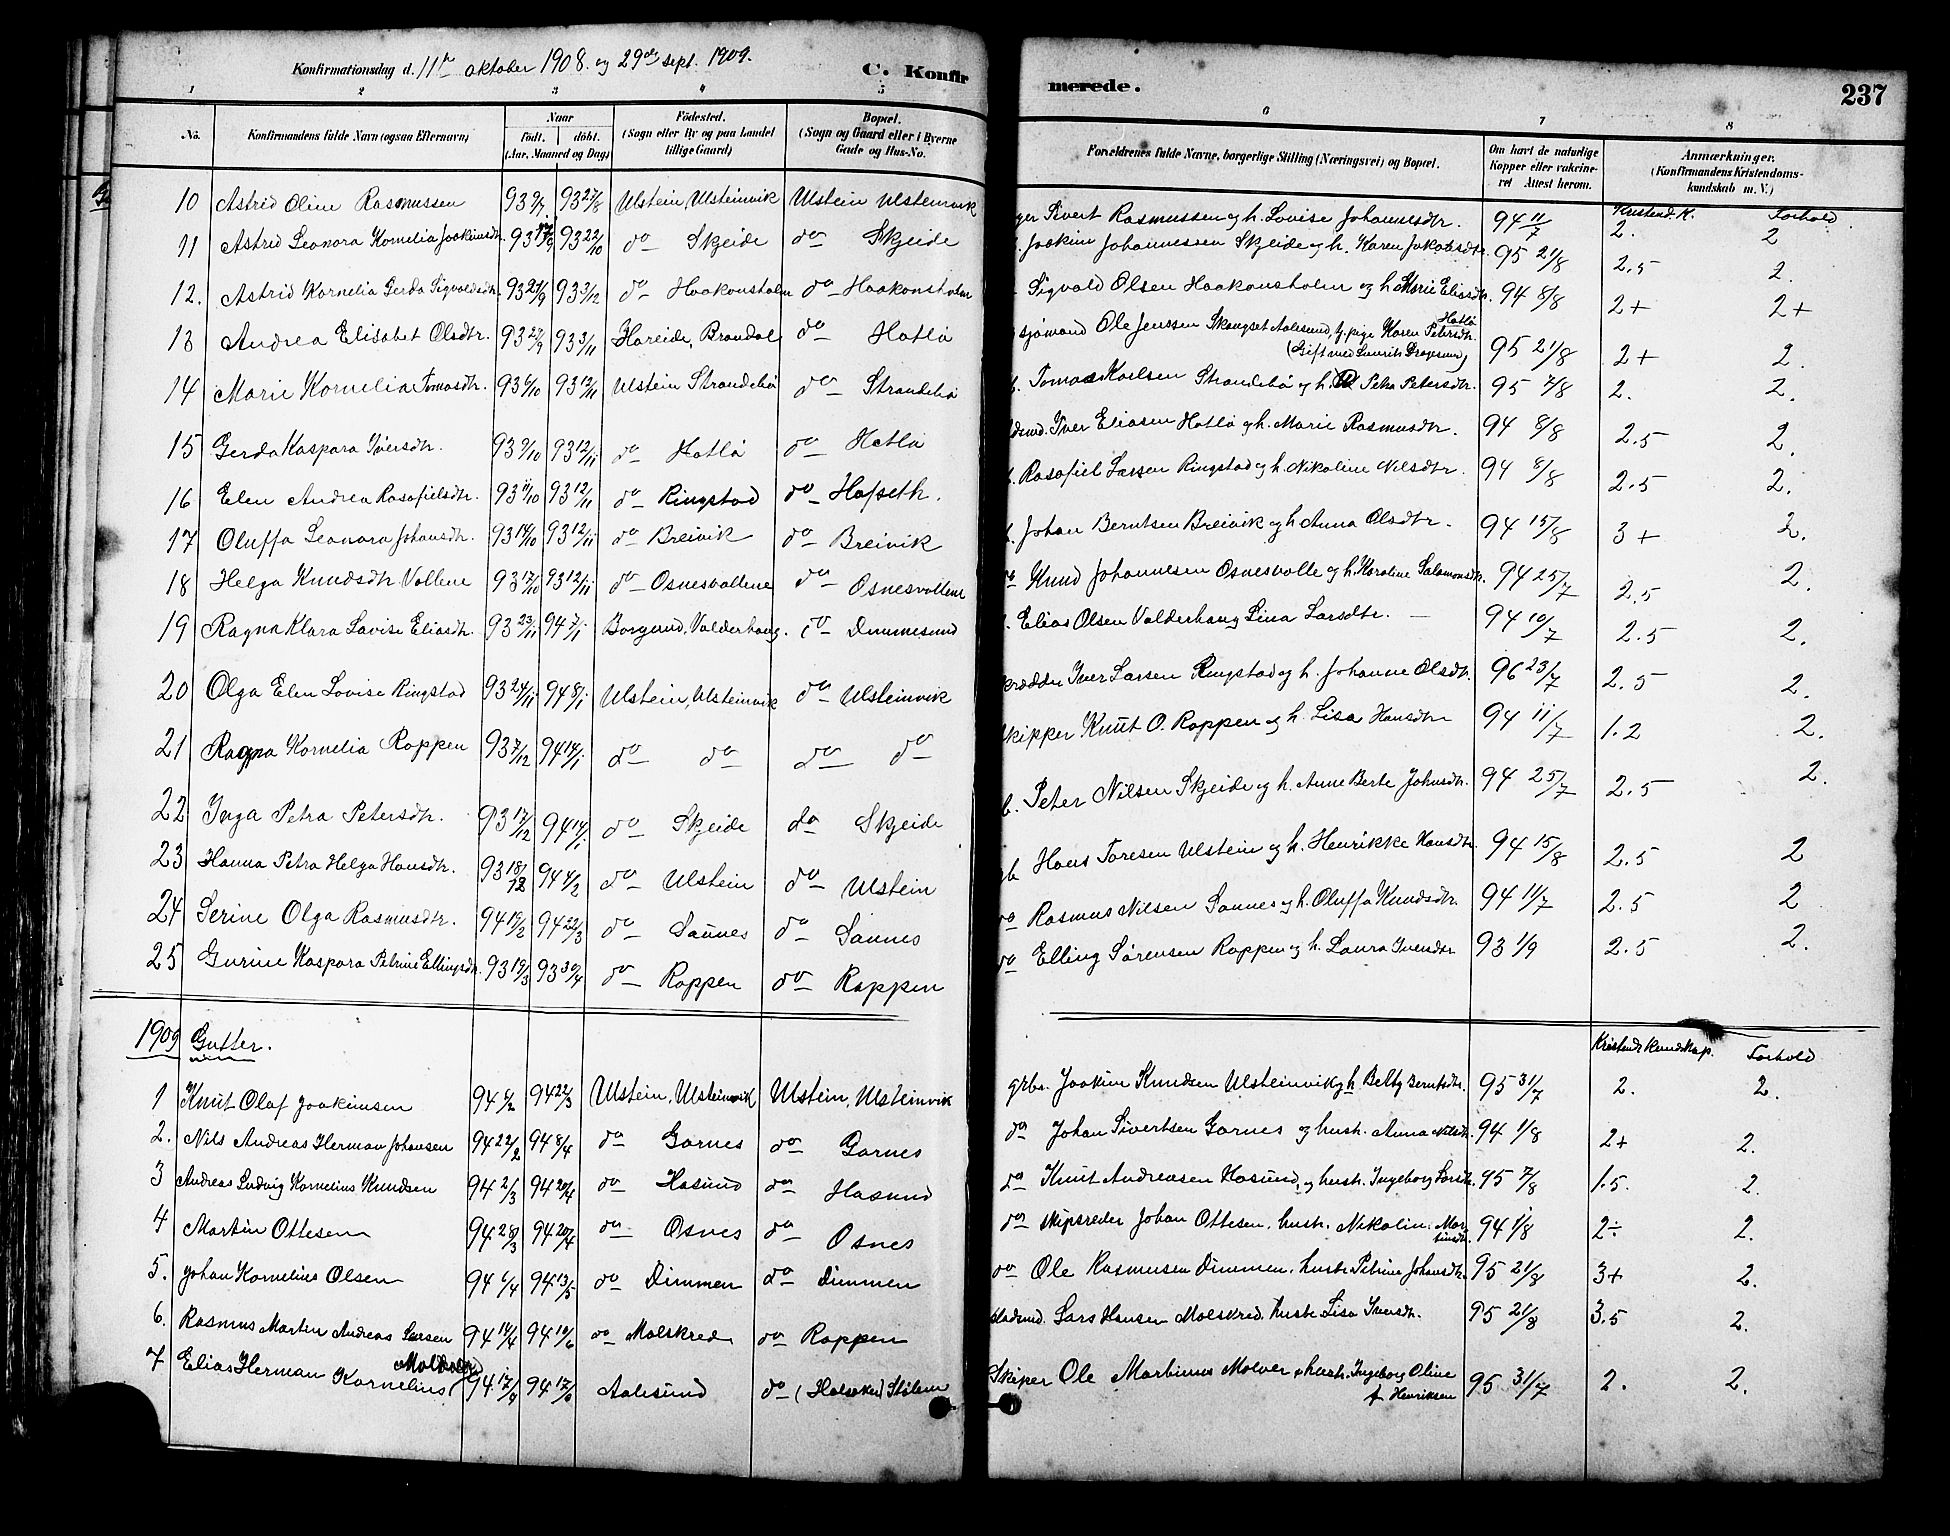 Konfirmationsdag d. 11te oktober 1908. og 29de sept. 1909.
C. Konfir
merede.
237
1 2 3 4 5 6 7 8
No. Konfirmandens fulde Navn (ogsaa Efternavn)
Naar
født. døbt.
(Aar, Maaned og Dag)
Fødested.
(Sogn eller By og paa Landet
tillige Gaard)
Bopæl.
(Sogn og Gaard eller i Byerne
Gade og Hus-No.
Forældrenes fulde Navne, borgerlige Stilling (Næringsvei) og Bopæl.
Om havt de naturlige
Kopper eller vakcine-
ret Attest herom.
Anmærkninger.
(Konfirmandens Kristendoms-
kundskab m. V.)
Kristend. K. Forhold
10 Astrid Oline Rasmussen 93 93 27/8 Ulstein Ulsteinvik Ulstein Ulsteinvik Sivert Rasmussen og h. Lovise Johannesdtr. 94 11/7 2. 2
11 Astrid Leonora Kornelia Joakimsdtr. 93 93 22/10 do Skjeide do Skjeide Joakim Johannessen Skjeide og h. Karen Jakobsdtr. 95 21/8 2.5 2.
12. Astrid Kornelia Gerda Sigvaldsdtr. 93 21/9 93 3/12 do Haakonsholm do Haakonsholm Sigvald Olsen Haakonsholm og h. Marie Eliasdtr. 94 8/8 2+ 2+
13 Andrea Elisabet Olsdtr. 93 93 3/11 Hareide, Brandal do Hatlø sjømand Ole Jenssen Aalesund, pige Karen Petersdtr. Hatlø 95 21/8 2+ 2.
(Gift med Laurits)
14 Marie Kornelia Tomasdtr. 93 6/10 93 12/11 Ulstein Strandebø do Strandebø Tomas Karlsen Strandebø og h. Petra Petersdtr. 95 7/8 2. 2.
15 Gerda Kaspara Iversdtr. 93 9/10 93 12/11 do Hatlø do Hatlø Iver Eliasen Hatlø og h. Marie Rasmusdtr. 94 8/8 2.5 2.
16 Elen Andrea Rasafielsdtr. 93 11/10 93 12/11 do Ringstad do Hofseth. Rasafiel Larsen Ringstad og h. Nikoline Nilsdtr. 94 8/8 2.5 2.
17 Oluffa Leonora Johansdtr. 93 14/10 93 12/11 do Breivik do Breivik Johan Berntsen Breivik og h. Anna Olsdtr. 94 15/8 3+ 2.
18 Helga Knudsdtr. Vollene 93 17/10 93 12/11 do Osnesvollene do Osnesvollene do Knud Johannesen Osnesvolle og h. Karoline Salamonsdtr. 94 25/7 2.5 2.
19 Ragna Klara Lovise Eliasdtr. 93 23/11 94 7/1 Borgund, Valderhaug. do Dimmesund Elias Olsen Valderhaug Lina Larsdtr. 94 10/7 2.5 2.
20 Olga Elen Lovise Ringstad 93 24/11 94 8/1 Ulstein, Ulsteinvik do Ulsteinvik Iver Larsen Ringstad og h. Johanne Olsdtr. 96 23/7 2.5 2.
21 Ragna Kornelia Roppen 93 7/12 94 14/1 do do do do skipper Knut O. Roppen og h. Lisa Hansdtr 94 11/7 1.2 2.
22 Inga Petra Petersdtr. 93 17/12 94 14/1 do Skjeide do Skjeide Peter Nilsen Skjeide og h. Anne Berte Johnsdtr. 94 25/7 2.5 2.
23 Hanna Petra Helga Hansdtr. 93 18/12 94 4/2 do Ulstein do Ulstein Hans Toresen Ulstein og h. Henrikke Hansdtr. 94 15/8 2.5 2
24 Serine Olga Rasmusdtr. 94 19/2 94 22/3 do Saunes do Saunes do Rasmus Nilsen Saunes og h. Oluffa Knudsdtr. 94 11/7 2.5 2
25 Gurine Kaspara Petrine Ellingsdtr. 93 19/3 93 30/4 do Roppen do Roppen do Elling Sørensen Roppen og h. Laura Iversdtr 93 1/9 2.5 2.
1909 Gutter.
Kristends Kundskap. Forhold
1 Knut Olaf Joakimsen 94 6/2 94 22/3 Ulstein, Ulsteinvik Ulstein, Ulsteinvik grbr. Joakim Knudsen Ulsteinvik og h Berntsdtr. 95 31/7 2. 2.
2. Nils Andreas Herman Johansen 94 22/2 94 8/4 do Garnes do Garnes do Johan Sivertsen Garnes og hustr. Anna Nilsdtr. 94 1/8 2+ 2.
3 Andreas Ludvig Kornelius Knudsen 94 2/3 94 20/4 do Hasund do Hasund do Knut Andreasen Hasund, og hustr. Ingeborg Larsdtr. 95 7/8 1.5. 2.
4 Martin Ottesen 94 28/3 94 20/4 do Osnes do Osnes do skipsreder Johan Ottesen, hustr. Nikolin Martinsdtr. 94 1/8 2÷ 2.
5. Johan Kornelius Olsen 94 1/4 94 13/5 do Dimmen do Dimmen do Ole Rasmusen Dimmen, hustr. Petrine Johansdtr. 95 21/8 3+ 2.
6. Rasmus Martin Andreas Larsen 94 14/4 94 10/6 do Malskred do Roppen Lars Hansen Malskred, hustr. Lisa Iversdtr. 95 21/8 3.5 2.
7 Elias Herman Kornelius 94 17/4 94 17/6 Aalesund do Skiper Ole Martinus Molver, hustr. Ingeborg Oline 95 31/7 2. 2.
f. Henriksen